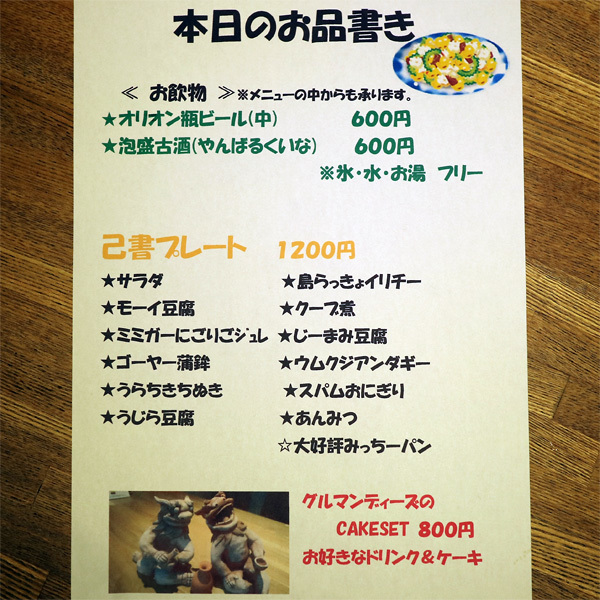 本日のお品書き
≪ お飲物 ≫※メニューの中からも承ります。
★オリオン瓶ビール(中) 600円
★泡盛古酒(やんばるくいな) 600円
※氷・水・お湯 フリー
己書プレート 1200円
★サラダ ★島らっきょイリチー
★モーイ豆腐 ★クーブ煮
★ミミガーにごりごジュレ ★じーまみ豆腐
★ゴーヤー蒲鉾 ★ウムクジアンダギー
★うらちきちぬき ★スパムおにぎり
★うじら豆腐 ★あんみつ
☆大好評みっちーパン
グルマンディーズの
CAKESET 800円
お好きなドリンク＆ケーキ